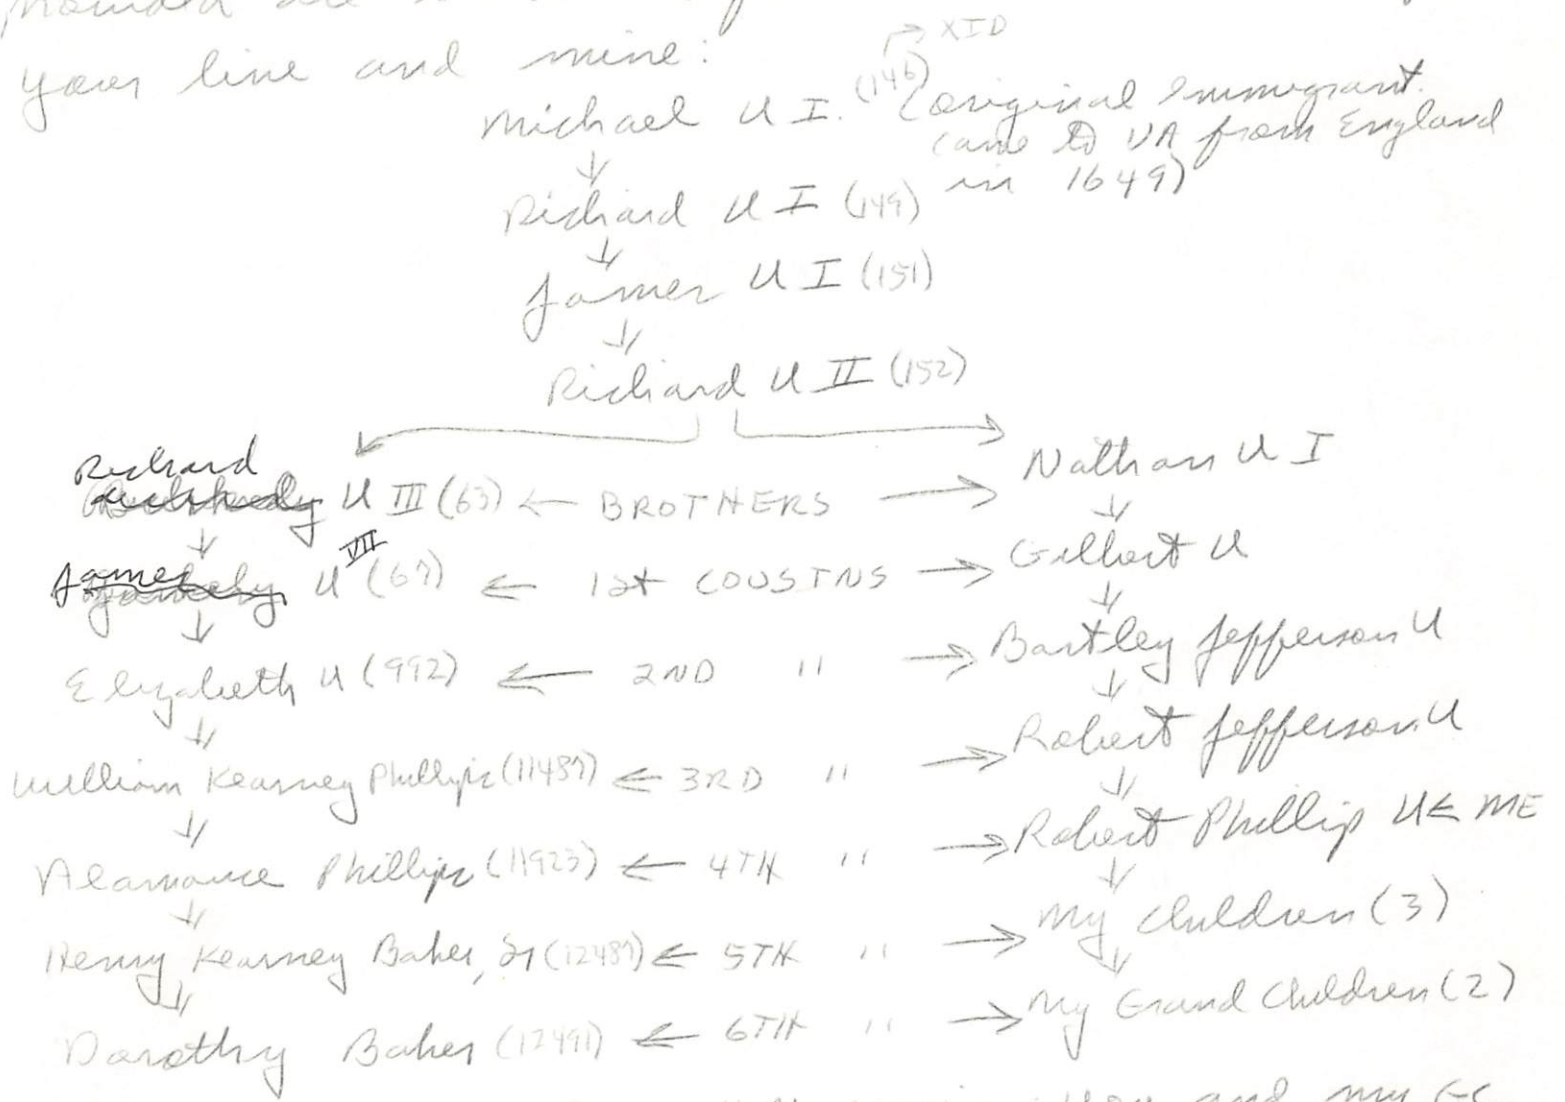 your line and mine:
→ XID
Michael U I. (146) (original Immigrant.
came to VA from England
in 1649)
↓
Richard U I (149)
↓
James U I (151)
↓
Richard U II (152)
Richard U III (63) ← BROTHERS → Nathan U I
↓ ↓
James U VII (67) ← 1st COUSINS → Gilbert U
↓ ↓
Elizabeth U (992) ← 2ND " → Bartley Jefferson U
↓ ↓
William Kearney Phillips (11487) ← 3RD " → Robert Jefferson U
↓ ↓
Alamance Phillips (11923) ← 4TH " → Robert Phillip U ← ME
↓ ↓
Henry Kearney Baker, Sr (12487) ← 5TH " → My Children (3)
↓ ↓
Dorothy Baker (12491) ← 6TH " → My Grand Children (2)
and my